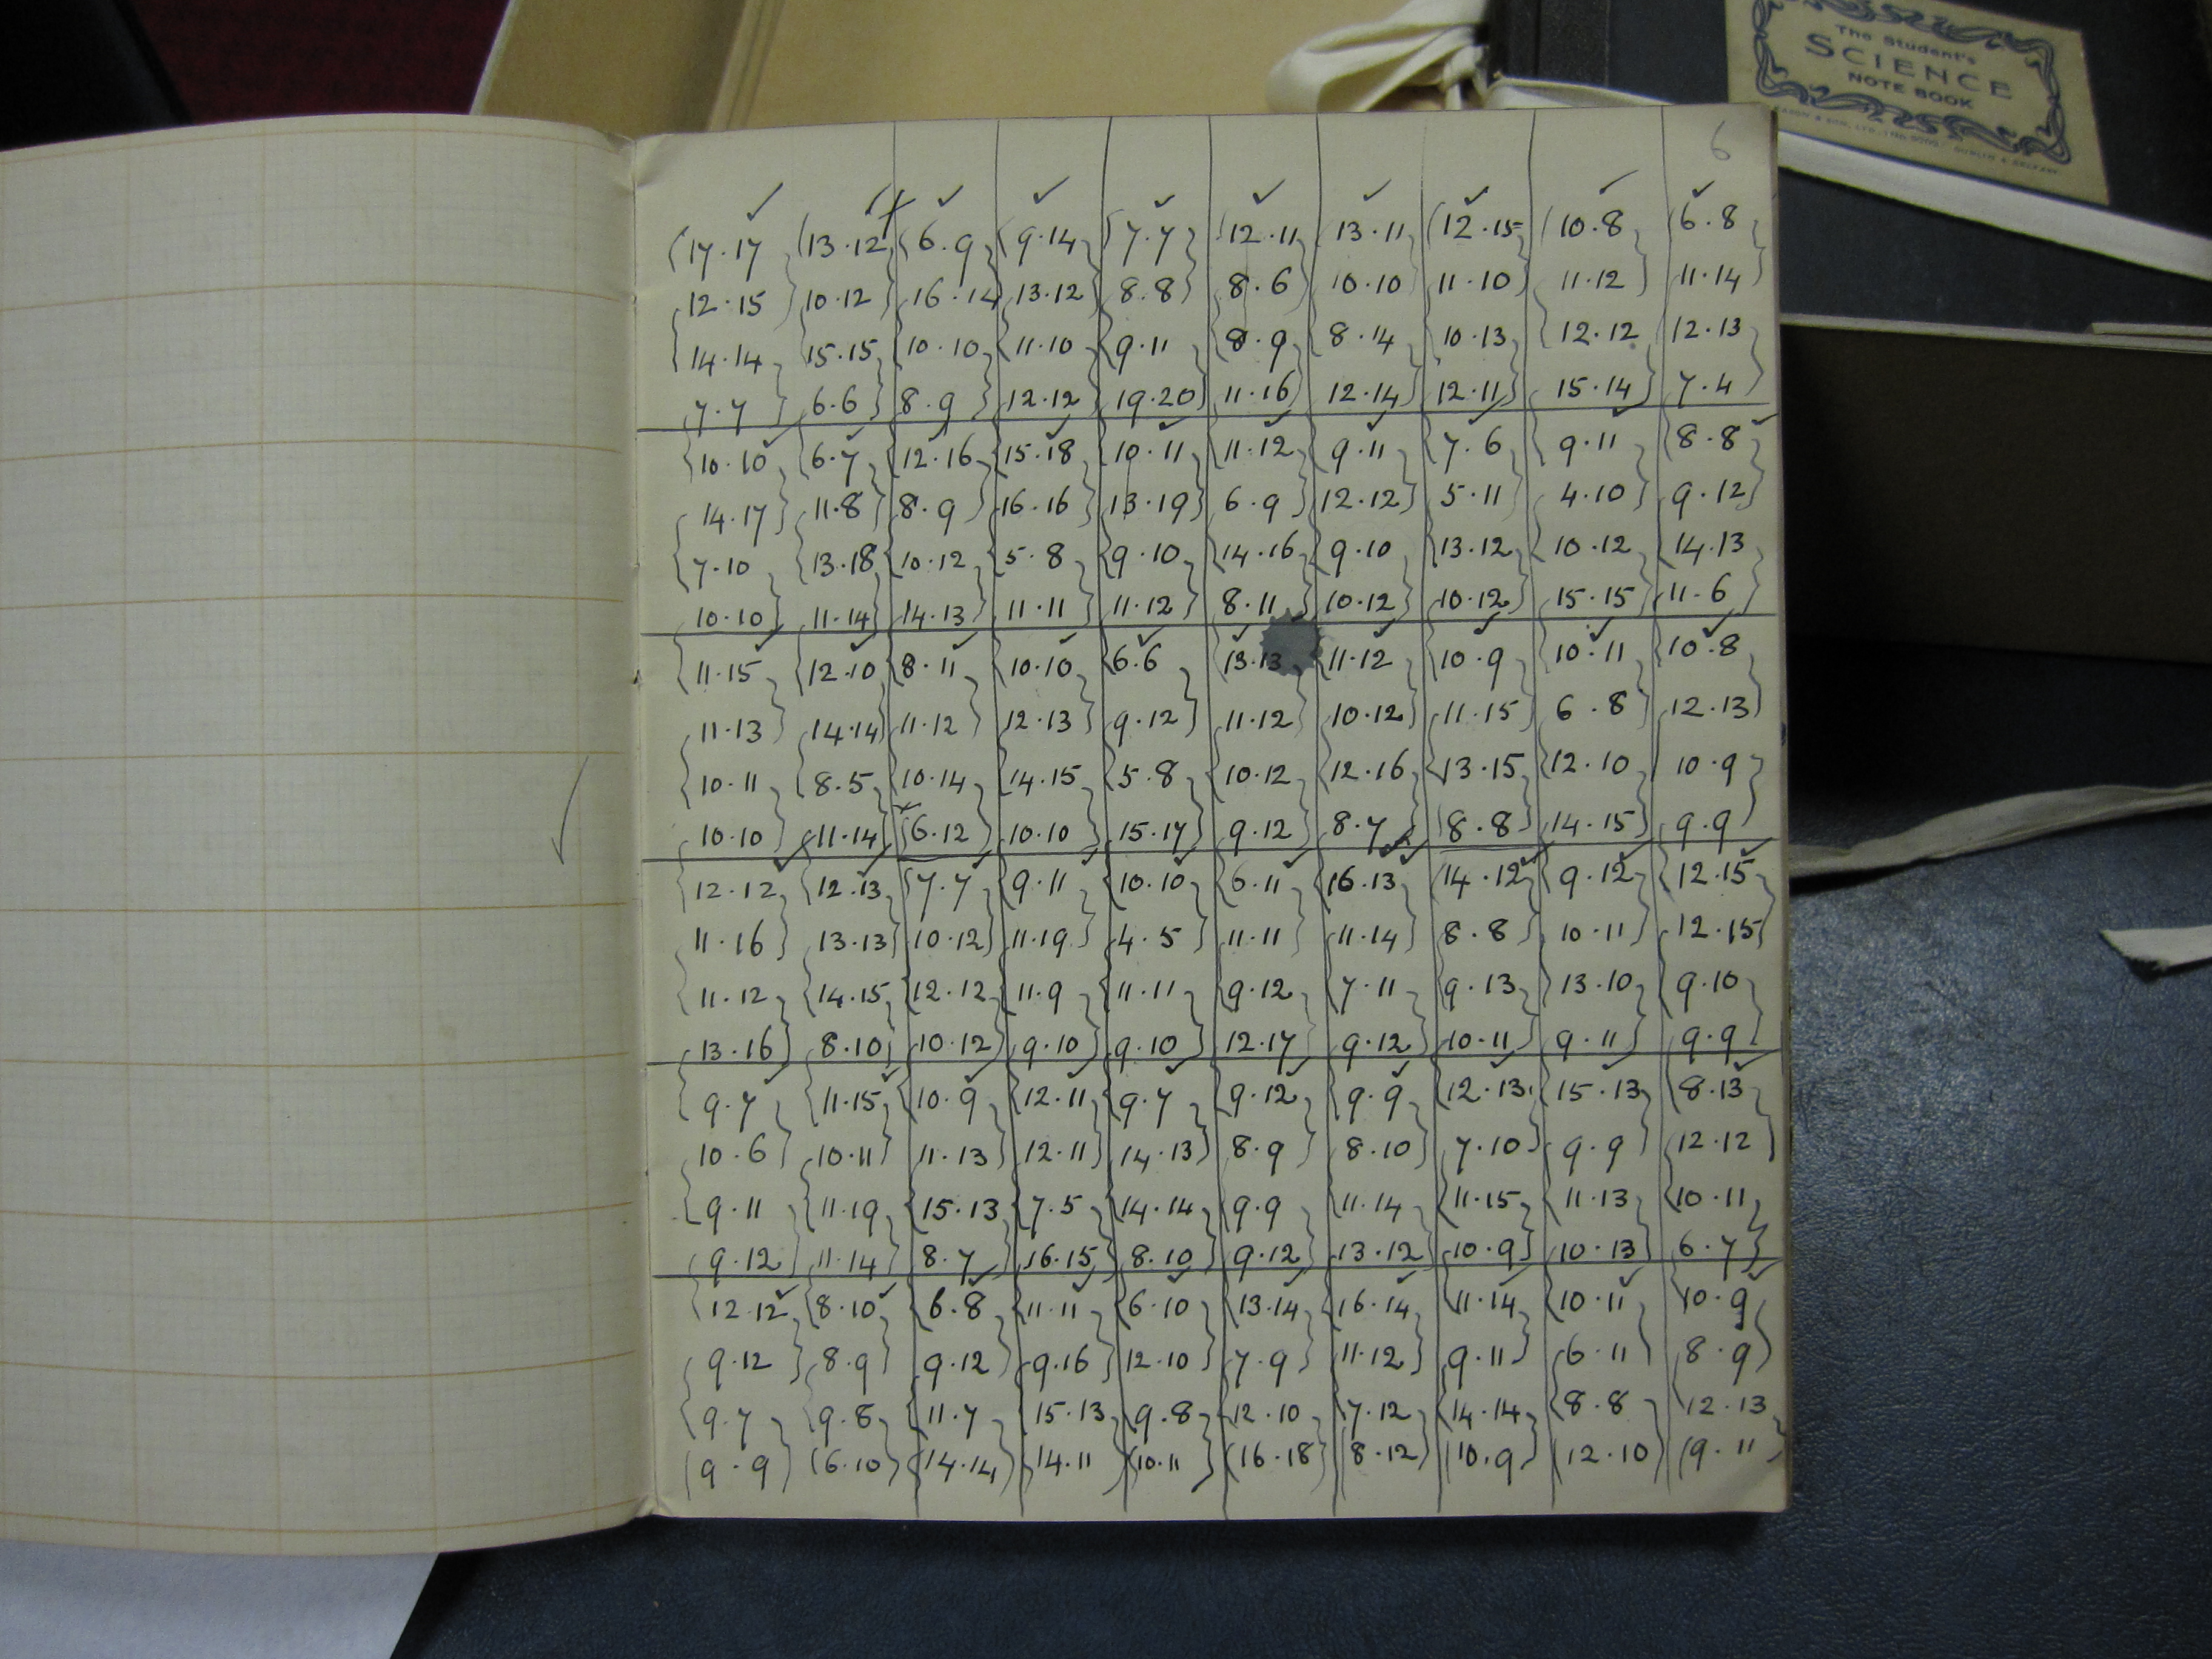 The Student's
SCIENCE
NOTE BOOK
6
17.17 13.12 6.9 9.14 7.7 12.11 13.11 12.15 10.8 6.8
12.15 10.12 16.14 13.12 8.8 8.6 10.10 11.10 11.12 11.14
14.14 15.15 10.10 11.10 9.11 8.9 8.14 10.13 12.12 12.13
7.7 6.6 8.9 12.12 19.20 11.16 12.14 12.11 15.14 7.4
10.10 6.7 12.16 15.18 10.11 11.12 9.11 7.6 9.11 8.8
14.17 11.8 8.9 16.16 13.19 6.9 12.12 5.11 4.10 9.12
7.10 13.18 10.12 5.8 9.10 14.16 9.10 13.12 10.12 14.13
10.10 11.14 14.13 11.11 11.12 8.11 10.12 10.12 15.15 11.6
11.15 12.10 8.11 10.10 6.6 13.13 11.12 10.9 10.11 10.8
11.13 14.14 11.12 12.13 9.12 11.12 10.12 11.15 6.8 12.13
10.11 8.5 10.14 14.15 5.8 10.12 12.16 13.15 12.10 10.9
10.10 11.14 6.12 10.10 15.17 9.12 8.7 8.8 14.15 9.9
12.12 12.13 7.7 9.11 10.10 6.11 16.13 14.12 9.12 12.15
11.16 13.13 10.12 11.19 4.5 11.11 11.14 8.8 10.11 12.15
11.12 14.15 12.12 11.9 11.11 9.12 7.11 9.13 13.10 9.10
13.16 8.10 10.12 9.10 9.10 12.17 9.12 10.11 9.11 9.9
9.7 11.15 10.9 12.11 9.7 9.12 9.9 12.13 15.13 8.13
10.6 10.11 11.13 12.11 14.13 8.9 8.10 7.10 9.9 12.12
9.11 11.19 15.13 7.5 14.14 9.9 11.14 11.15 11.13 10.11
9.12 11.14 8.7 16.15 8.10 9.12 13.12 10.9 10.13 6.7
12.12 8.10 6.8 11.11 6.10 13.14 16.14 11.14 10.11 10.9
9.12 8.9 9.12 9.16 12.10 7.9 11.12 9.11 6.11 8.9
9.7 9.8 11.7 15.13 9.8 12.10 7.12 14.14 8.8 12.13
9.9 6.10 14.14 14.11 10.11 16.18 8.12 10.9 12.10 9.11